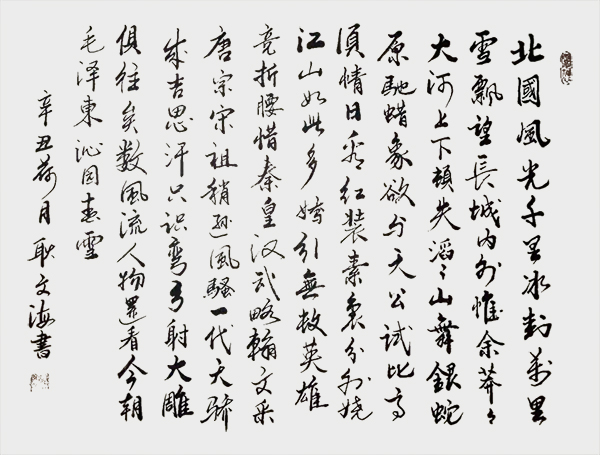 北國風光千里冰封萬里
雪飄望長城内外惟余莽々
大河上下頓失滔々山舞銀蛇
原馳蜡象欲与天公試比高
須晴日看红装素裹分外娆
江山如此多娇引無数英雄
竞折腰惜秦皇汉武略输文采
唐宗宋祖稍逊風騷一代天骄
成吉思汗只识弯弓射大雕
俱往矣数風流人物還看今朝
毛泽東沁园春雪
辛丑荷月耿文海書